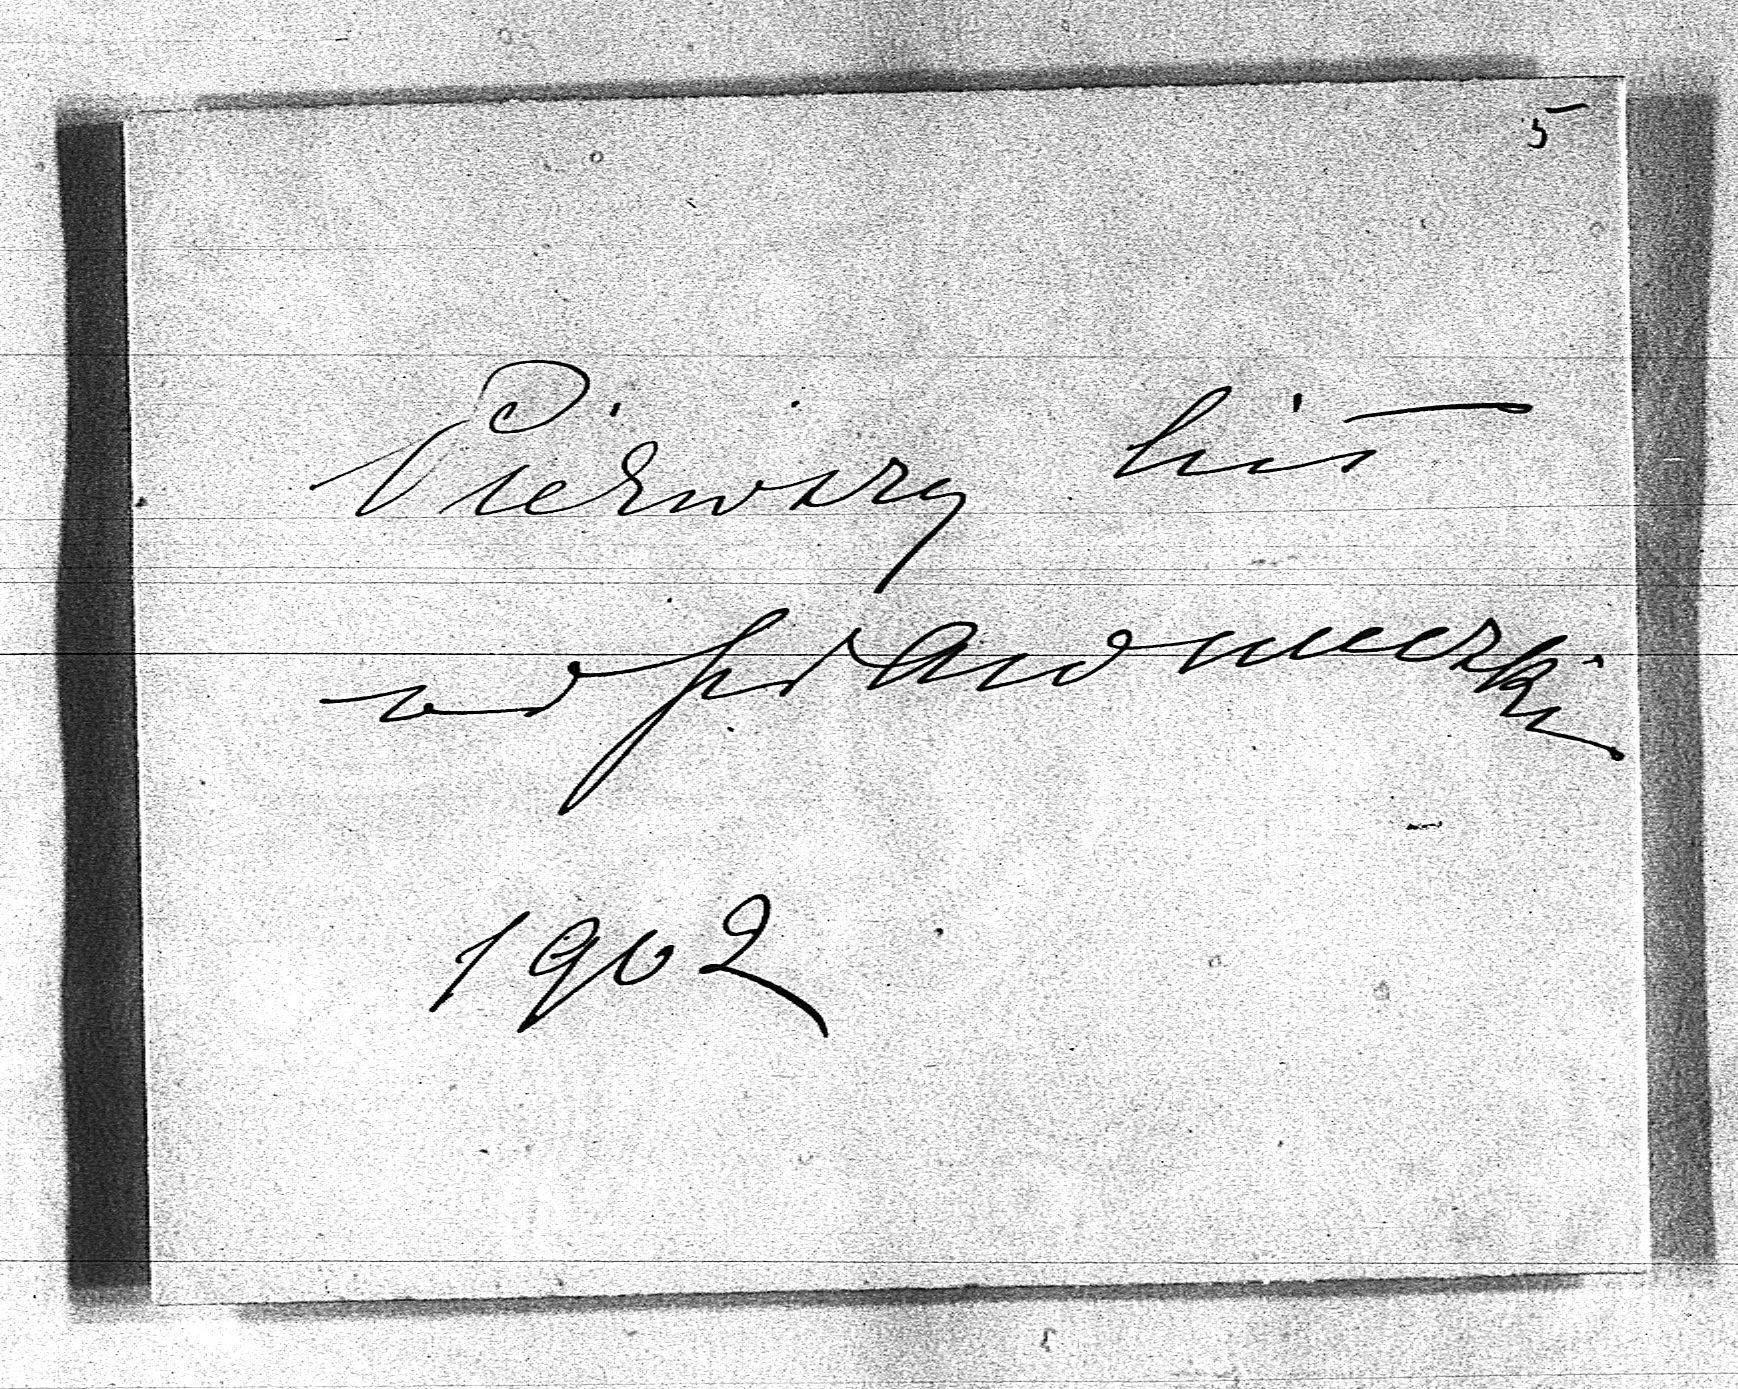 5
Pierwszy list
od prawnuczki
1902